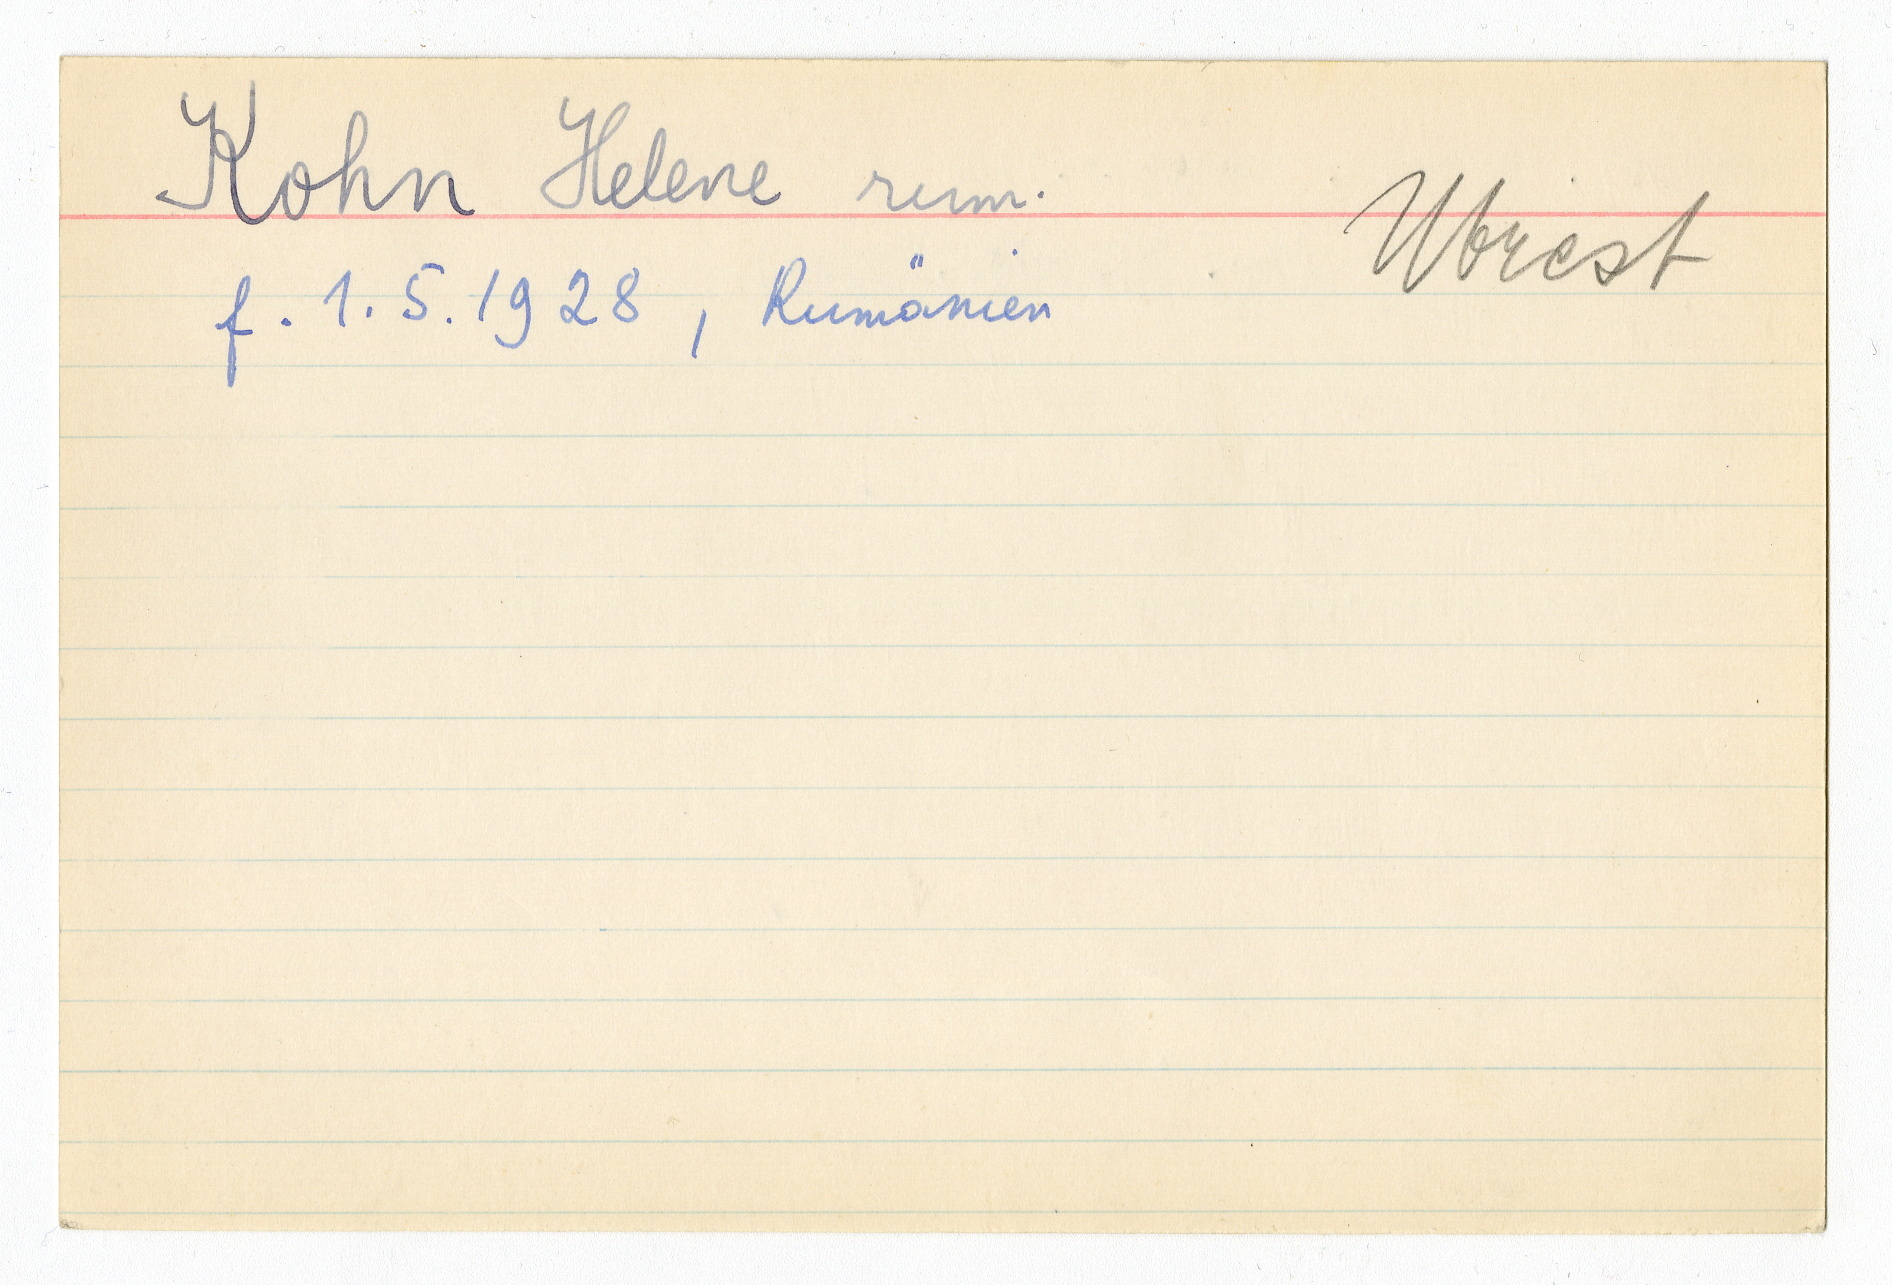 Kohn Helene rum.
Utrest
f. 1.5.1928, Rumänien